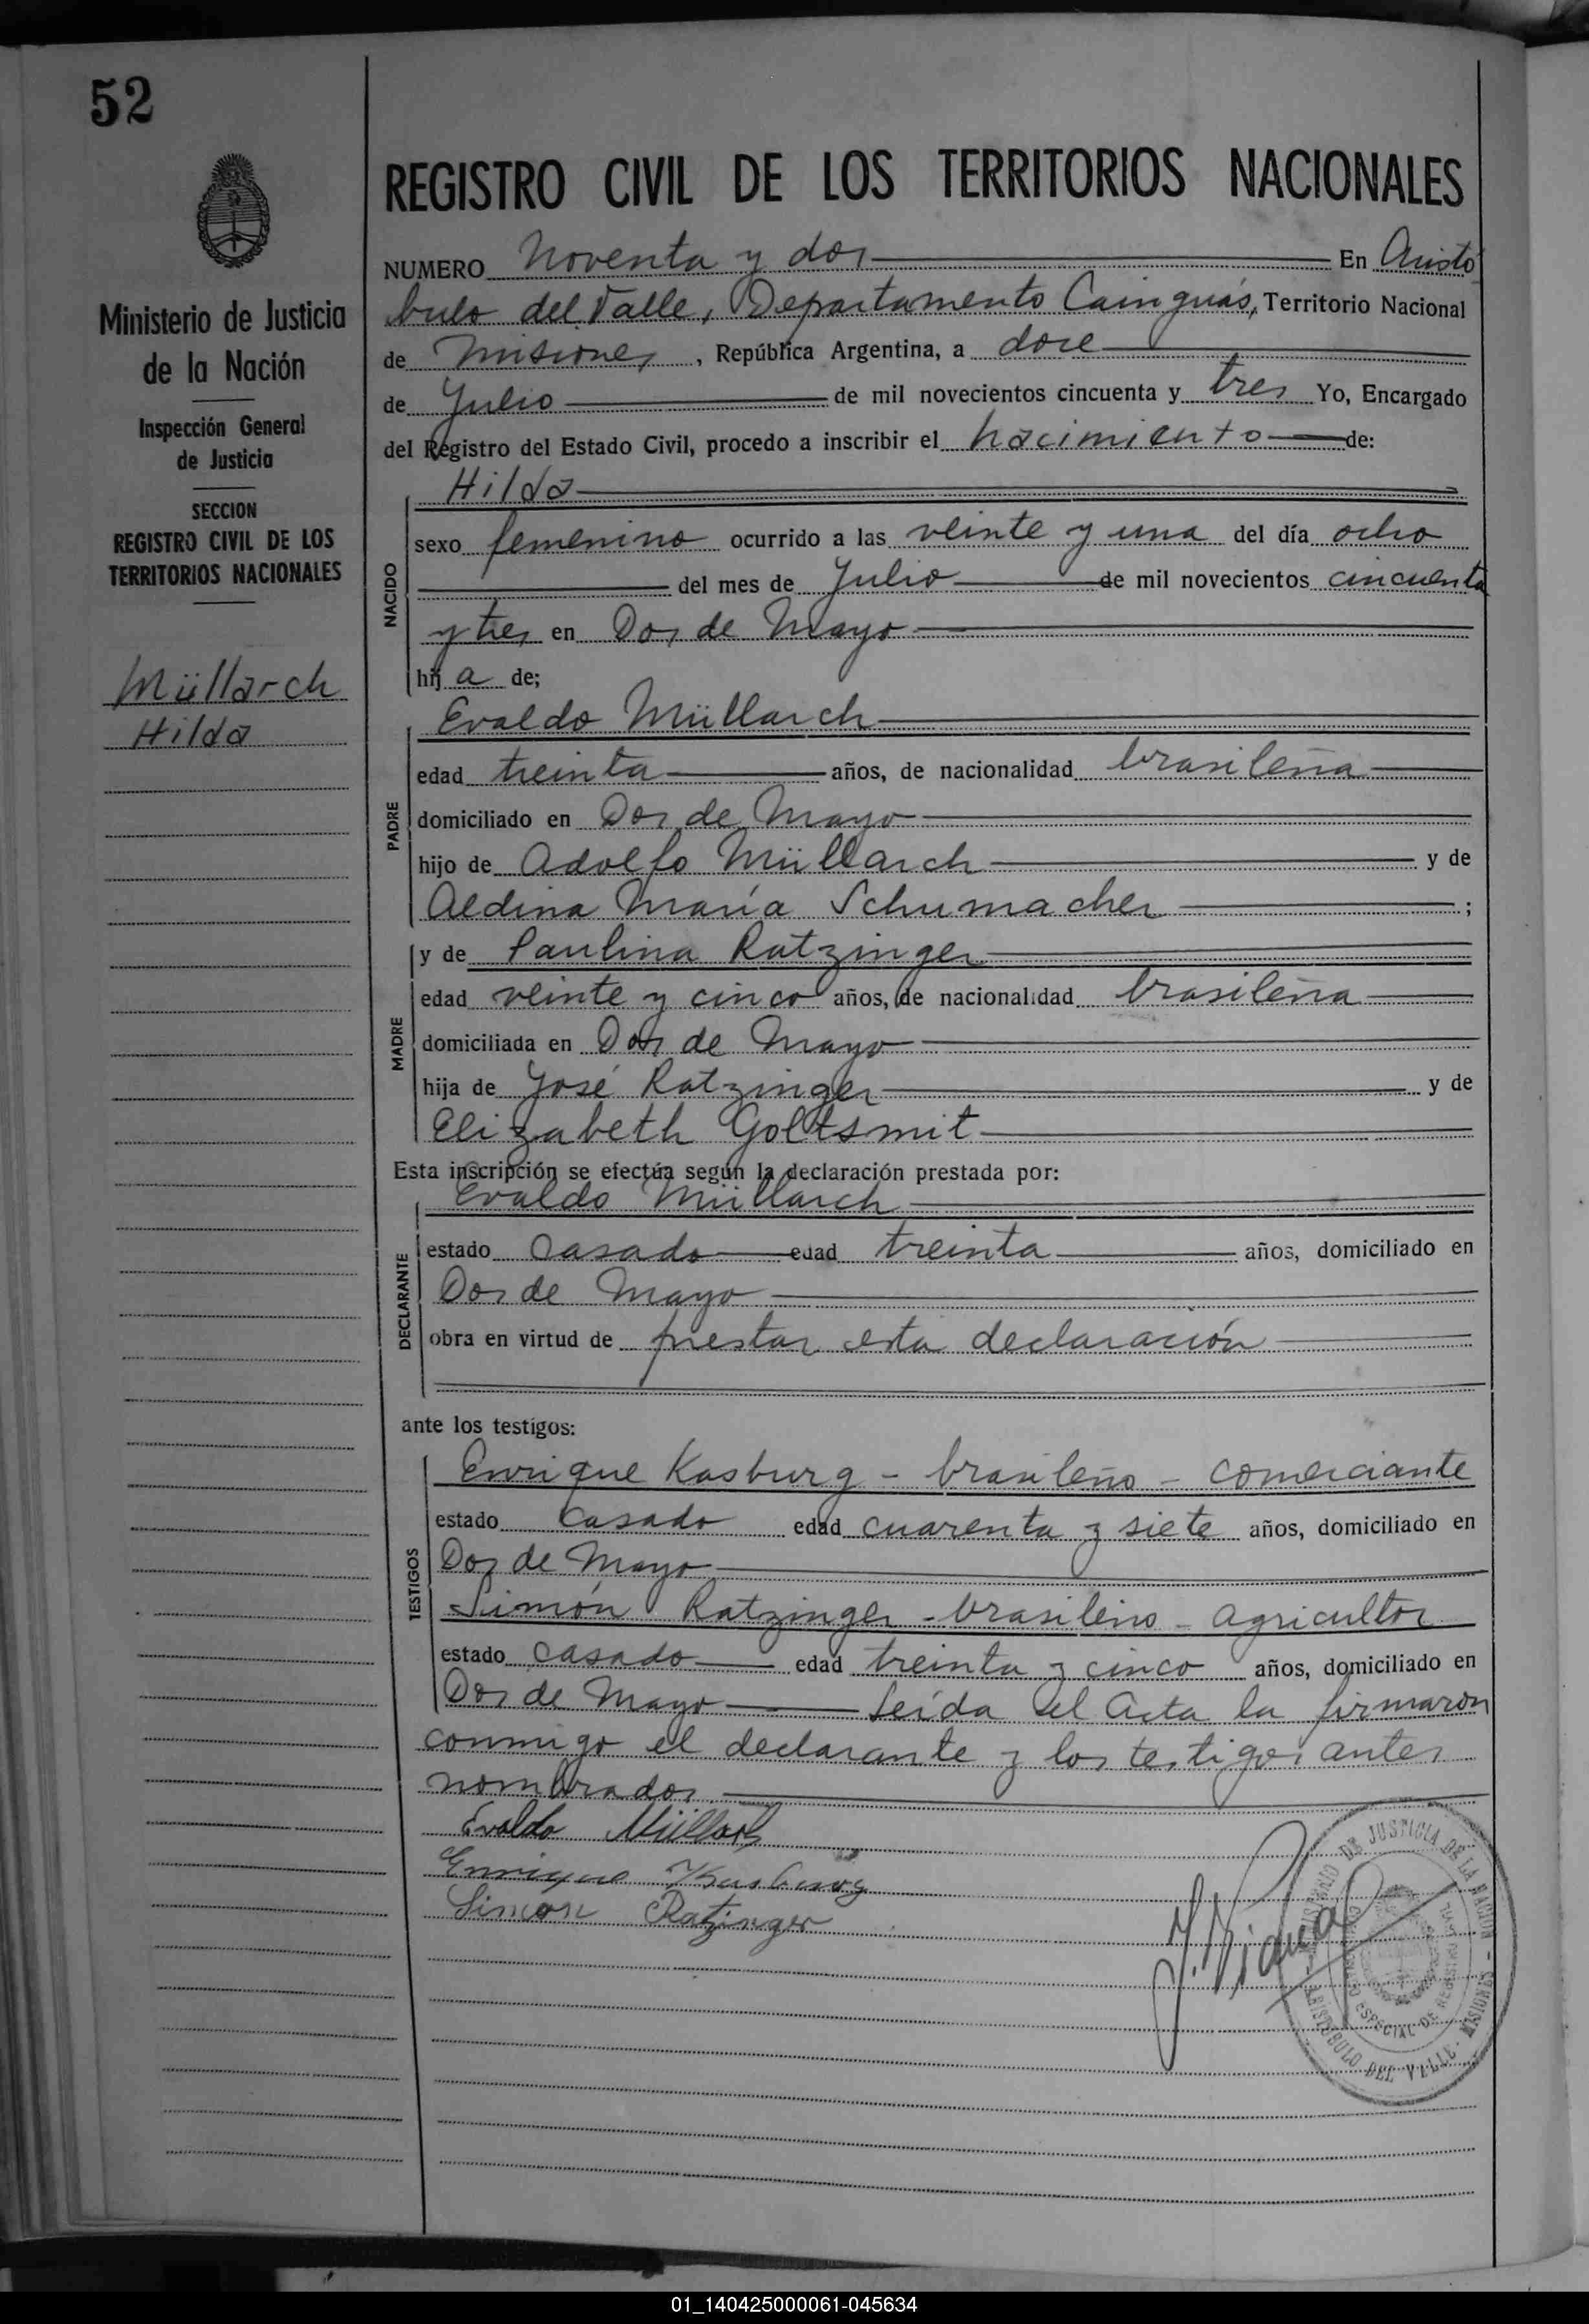 52
Ministerio de Justicia
de la Nación
Inspección General
de Justicia
SECCION
REGISTRO CIVIL DE LOS
TERRITORIOS NACIONALES
Müllarch
Hilda
REGISTRO CIVIL DE LOS TERRITORIOS NACIONALES
NUMERO Noventa y dos En Aristó
bulo del Valle, Departamento Cainguás, Territorio Nacional
de Misiones, República Argentina, a doce
de Julio de mil novecientos cincuenta y tres Yo, Encargado
del Registro del Estado Civil, procedo a inscribir el nacimiento de:
NACIDO
Hilda
sexo femenino ocurrido a las veinte y una del día ocho
del mes de Julio de mil novecientos cincuenta
y tres en Dos de Mayo
hij a de;
PADRE
Evaldo Müllarch
edad treinta años, de nacionalidad brasileña
domiciliado en Dos de Mayo
hijo de Adolfo Müllarch y de
Aldina María Schumacher ;
MADRE
y de Paulina Ratzinger
edad veinte y cinco años, de nacionalidad brasileña
domiciliada en Dos de Mayo
hija de José Ratzinger y de
Elizabeth Goltsmit
Esta inscripción se efectúa según la declaración prestada por:
DECLARANTE
Evaldo Müllarch
estado Casado edad treinta años, domiciliado en
Dos de Mayo
obra en virtud de prestar esta declaración
ante los testigos:
TESTIGOS
Enrique Kasburg - brasileño - comerciante
estado Casado edad cuarenta y siete años, domiciliado en
Dos de Mayo
Simón Ratzinger - brasileño - agricultor
estado Casado edad treinta y cinco años, domiciliado en
Dos de Mayo Leída el Acta la firmaron
conmigo el declarante y los testigos antes
nombrados
Evaldo Müllarch
Enrique Kasburg
Simon Ratzinger
DE JUSTICIA DE LA NACION - MISIONES
ESPECIAL DE
ARISTOBULO DEL VALLE
01_140425000061-045634